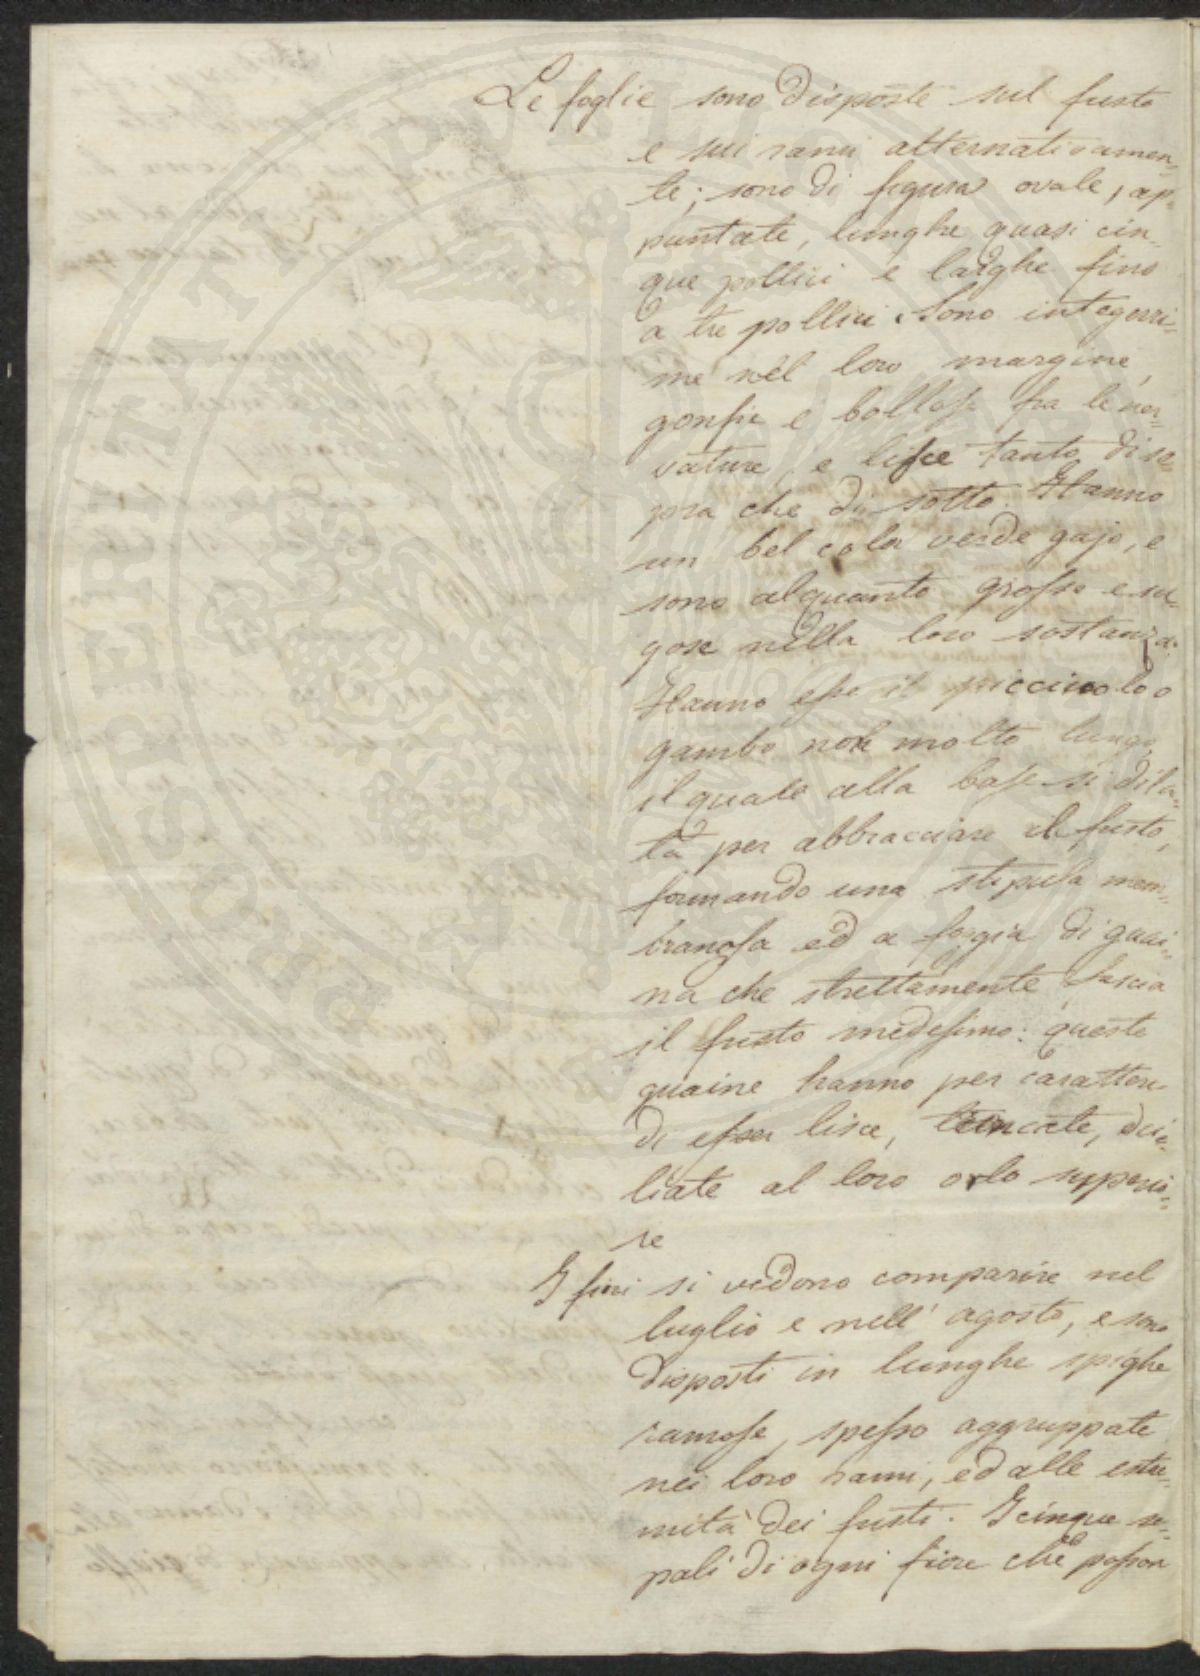 Le foglie sono disposte sul fusto
e sui rami alternativamen=
te; sono di figura ovale, ap=
puntate, lunghe quasi cin=
que pollici e larghe fino
a tre pollici. Sono integerri=
me nel loro margine,
gonfie e bollose fra le ner=
vature, e lisce tanto di so=
pra che di sotto. Hanno
un bel color verde gajo, e
sono alquanto grosse e su=
gose nella loro sostanza.
Hanno esse il picciuolo o
gambo non molto lungo,
il quale alla base si dila=
ta per abbracciare il fusto,
formando una stipula mem=
branosa ed a foggia di guai=
na che strettamente fascia
il fusto medesimo: queste
guaine hanno per carattere
di esser lisce, troncate, e ci=
liate al loro orlo superio=
re
I fiori si vedono comparire nel
luglio e nell' agosto, e sono
disposti in lunghe spighe
ramose, spesso aggruppate
nei loro rami, ed alle estre=
mità dei fusti. I cinque se=
pali di ogni fiore che posson
PROSPERITATI PVBLICAE